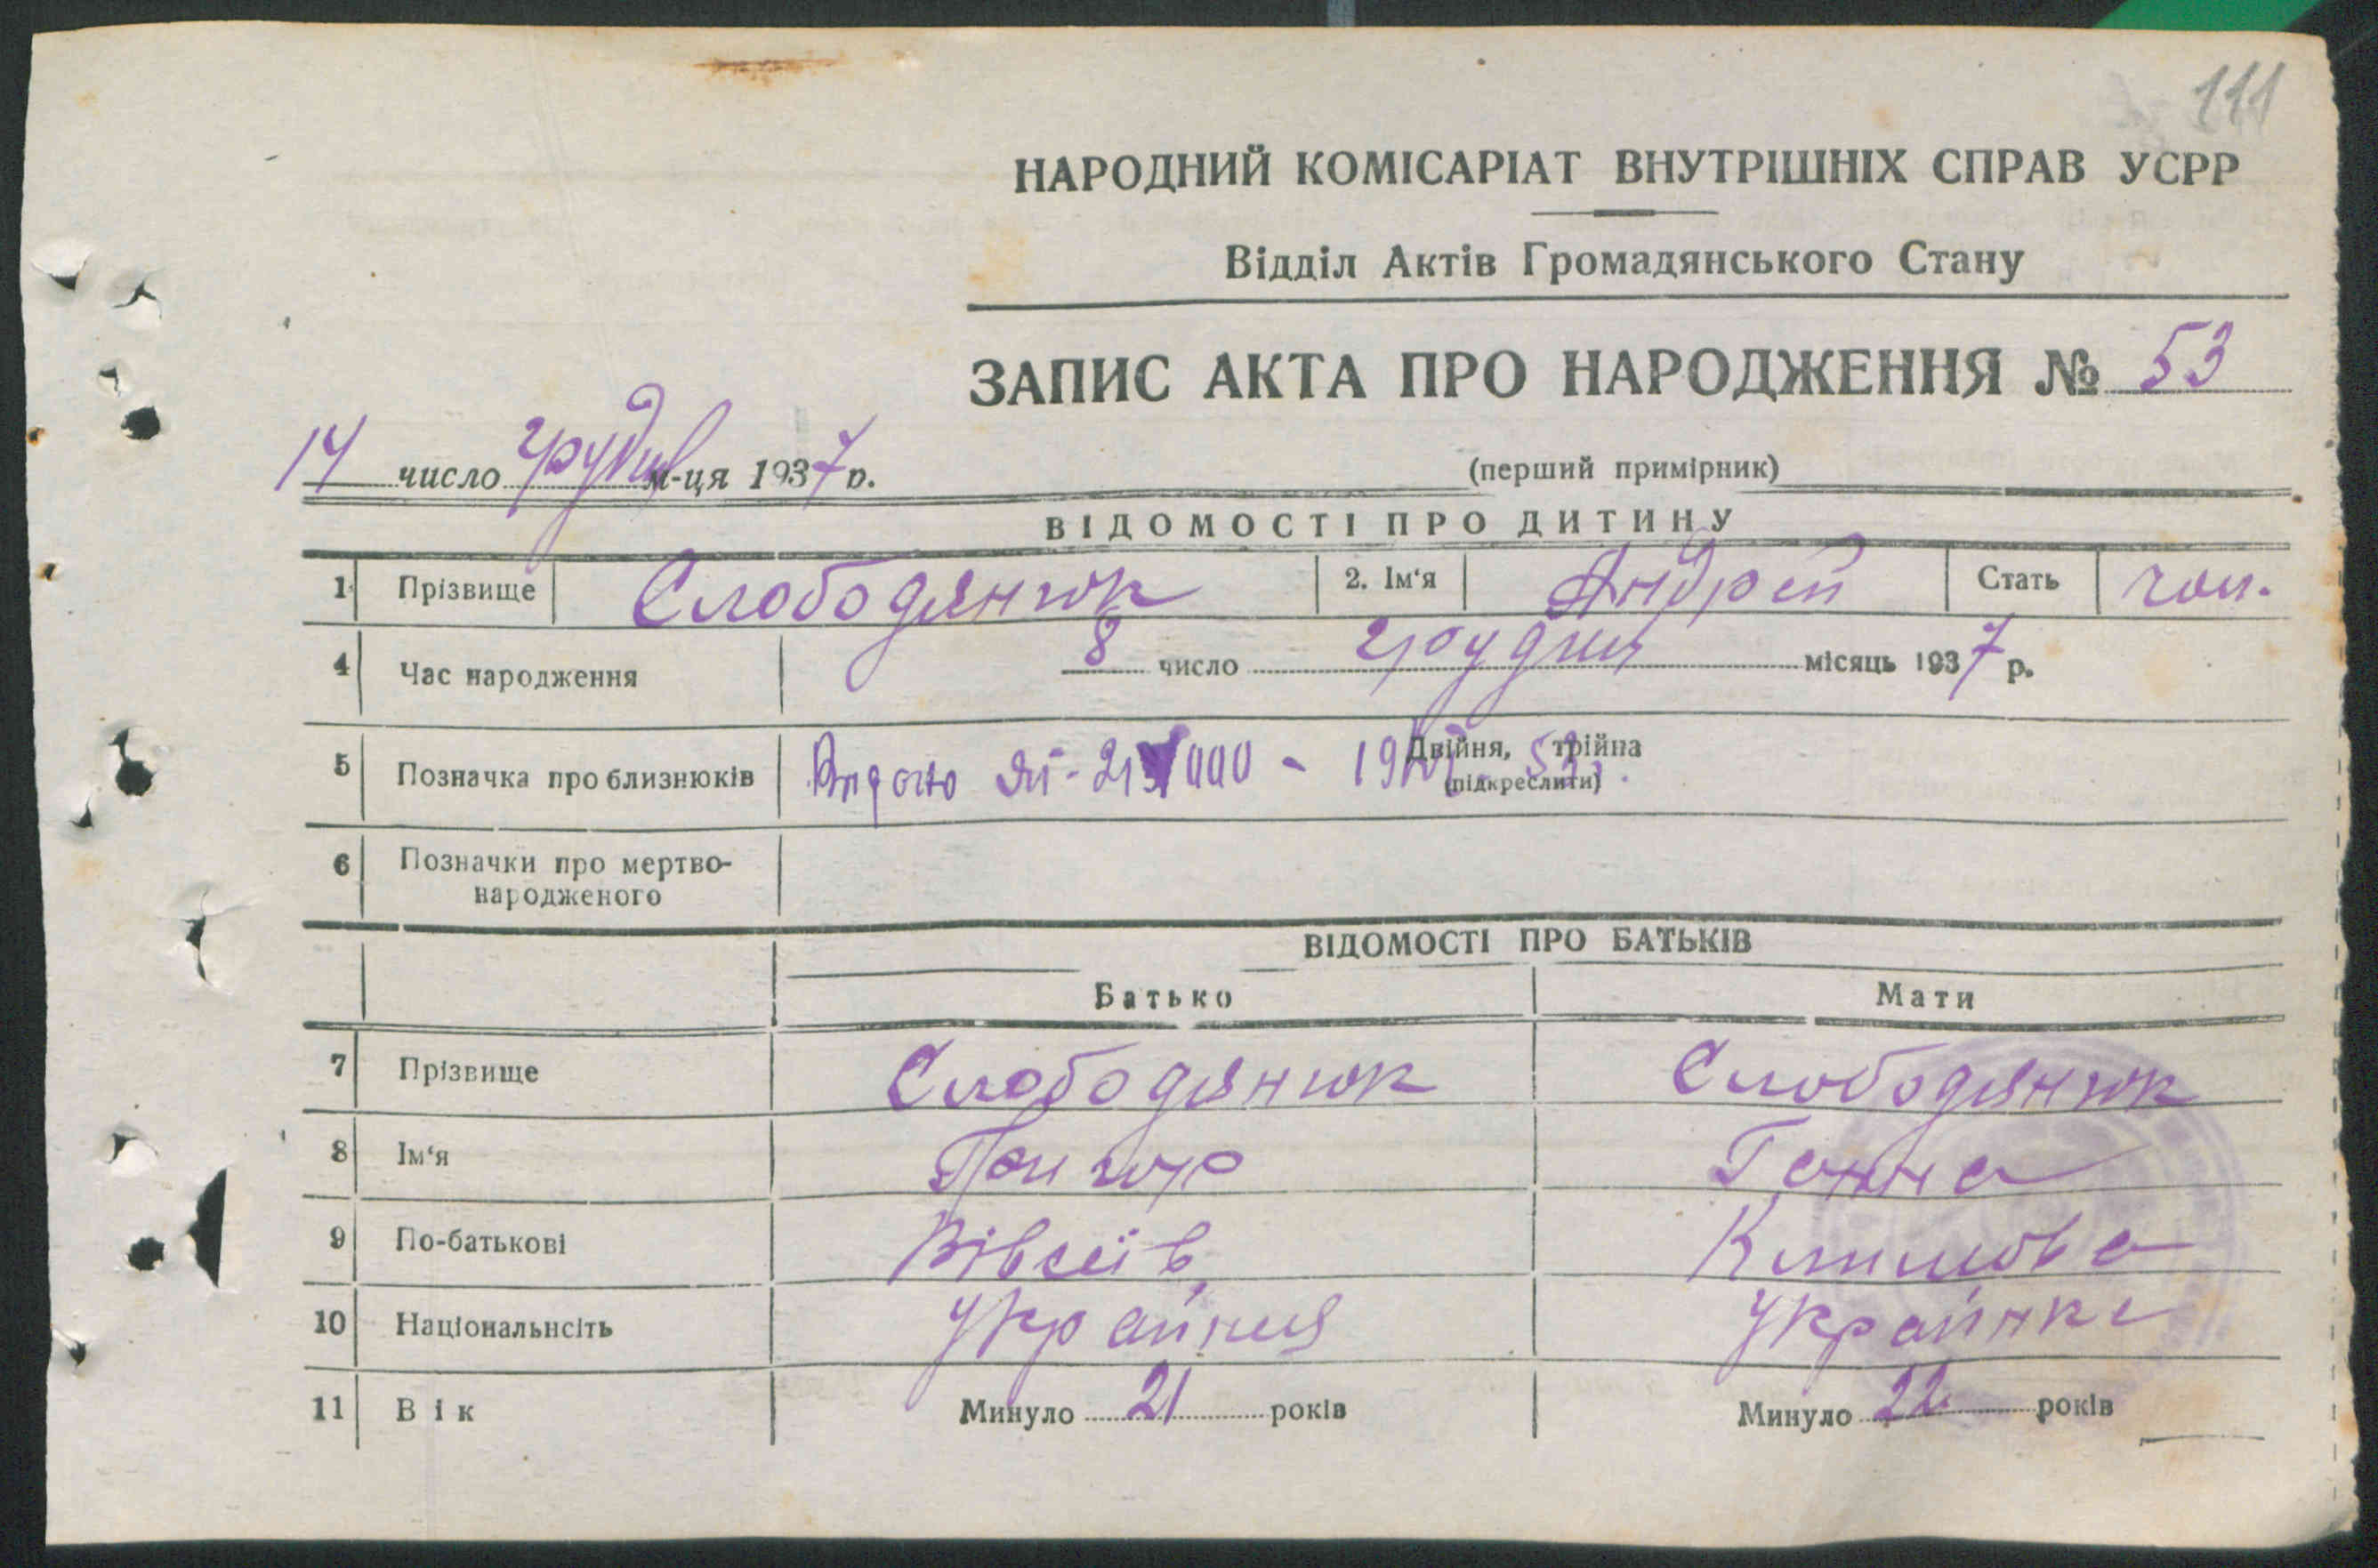 111
НАРОДНИЙ КОМІСАРІАТ ВНУТРІШНІХ СПРАВ УСРР
Відділ Актів Громадянського Стану
ЗАПИС АКТА ПРО НАРОДЖЕННЯ № 53
14 число грудня м-ця 1937 р.
(перший примірник)
ВІДОМОСТІ ПРО ДИТИНУ
1 Прізвище Слободянюк 2. Ім‘я Андрей Стать чол.
4 Час народження 8 число грудня місяць 1937 р.
5 Позначка про близнюків Двійня, трійна
(підкреслити)
6 Позначки про мертво-
народженого
ВІДОМОСТІ ПРО БАТЬКІВ
Батько Мати
7 Прізвище Слободянюк Слободянюк
8 Ім‘я Григор Ганна
9 По-батькові Вівсеїв Климова
10 Національнсіть Українец Українка
11 Вік Минуло 21 років Минуло 22 років